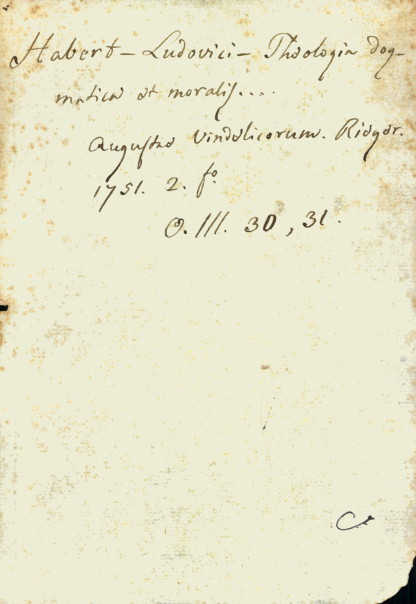 Habert - Ludovici - Theologia dog-
matica et moralis....
Augustae Vindelicorum. Rieger.
1751. 2. fo.
O. III. 30, 31.